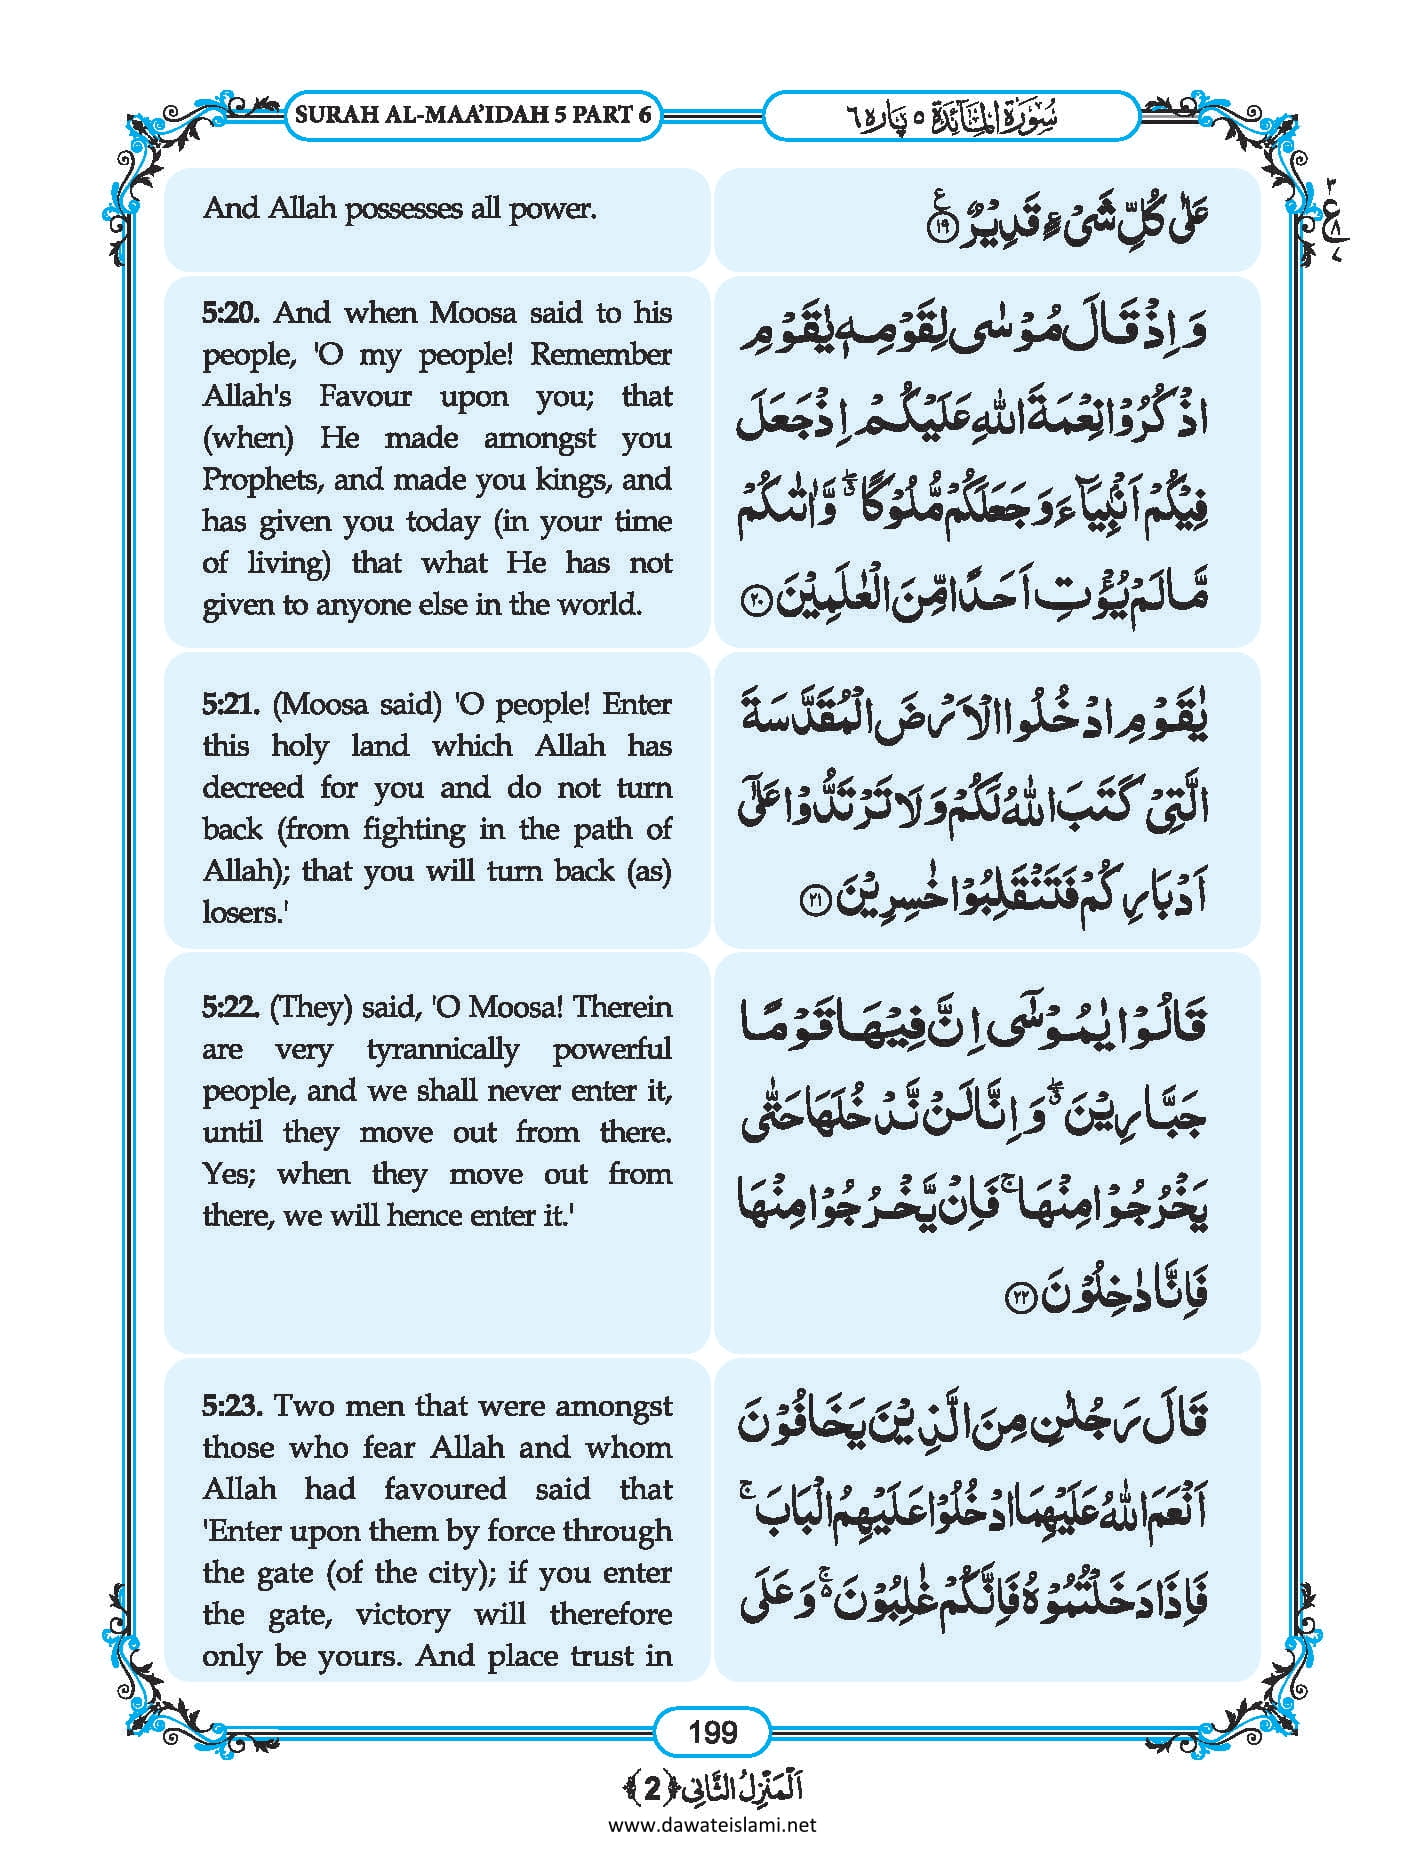 SURAH AL-MAA'IDAH 5 PART 6
سُوۡرَةُ الۡمَآئِدَة ٥ پَارہ ٦
And Allah possesses all power.
عَلٰى كُلِّ شَیۡءٍ قَدِیۡرٌ ﴿۱۹﴾ ع
5:20. And when Moosa said to his
people, 'O my people! Remember
Allah's Favour upon you; that
(when) He made amongst you
Prophets, and made you kings, and
has given you today (in your time
of living) that what He has not
given to anyone else in the world.
وَ اِذۡ قَالَ مُوۡسٰى لِقَوۡمِهٖ یٰقَوۡمِ
اذۡكُرُوۡا نِعۡمَةَ اللّٰهِ عَلَیۡكُمۡ اِذۡ جَعَلَ
فِیۡكُمۡ اَنۡۢبِیَآءَ وَ جَعَلَكُمۡ مُّلُوۡكًا ۖ٭ وَّ اٰتٰىكُمۡ
مَّا لَمۡ یُؤۡتِ اَحَدًا مِّنَ الۡعٰلَمِیۡنَ ﴿۲۰﴾
5:21. (Moosa said) 'O people! Enter
this holy land which Allah has
decreed for you and do not turn
back (from fighting in the path of
Allah); that you will turn back (as)
losers.'
یٰقَوۡمِ ادۡخُلُوا الۡاَرۡضَ الۡمُقَدَّسَةَ
الَّتِیۡ كَتَبَ اللّٰهُ لَكُمۡ وَ لَا تَرۡتَدُّوۡا عَلٰۤى
اَدۡبَارِكُمۡ فَتَنۡقَلِبُوۡا خٰسِرِیۡنَ ﴿۲۱﴾
5:22. (They) said, 'O Moosa! Therein
are very tyrannically powerful
people, and we shall never enter it,
until they move out from there.
Yes; when they move out from
there, we will hence enter it.'
قَالُوۡا یٰمُوۡسٰۤى اِنَّ فِیۡهَا قَوۡمًا
جَبَّارِیۡنَ ۖ٭ وَ اِنَّا لَنۡ نَّدۡخُلَهَا حَتّٰى
یَخۡرُجُوۡا مِنۡهَا ۚ فَاِنۡ یَّخۡرُجُوۡا مِنۡهَا
فَاِنَّا دٰخِلُوۡنَ ﴿۲۲﴾
5:23. Two men that were amongst
those who fear Allah and whom
Allah had favoured said that
'Enter upon them by force through
the gate (of the city); if you enter
the gate, victory will therefore
only be yours. And place trust in
قَالَ رَجُلٰنِ مِنَ الَّذِیۡنَ یَخَافُوۡنَ
اَنۡعَمَ اللّٰهُ عَلَیۡهِمَا ادۡخُلُوۡا عَلَیۡهِمُ الۡبَابَ ۚ
فَاِذَا دَخَلۡتُمُوۡهُ فَاِنَّكُمۡ غٰلِبُوۡنَ ۬ۚ وَ عَلَى
٣
ع
٨
٧
199
اَلۡمَنۡزِلُ الثَّانِی ﴿2﴾
www.dawateislami.net